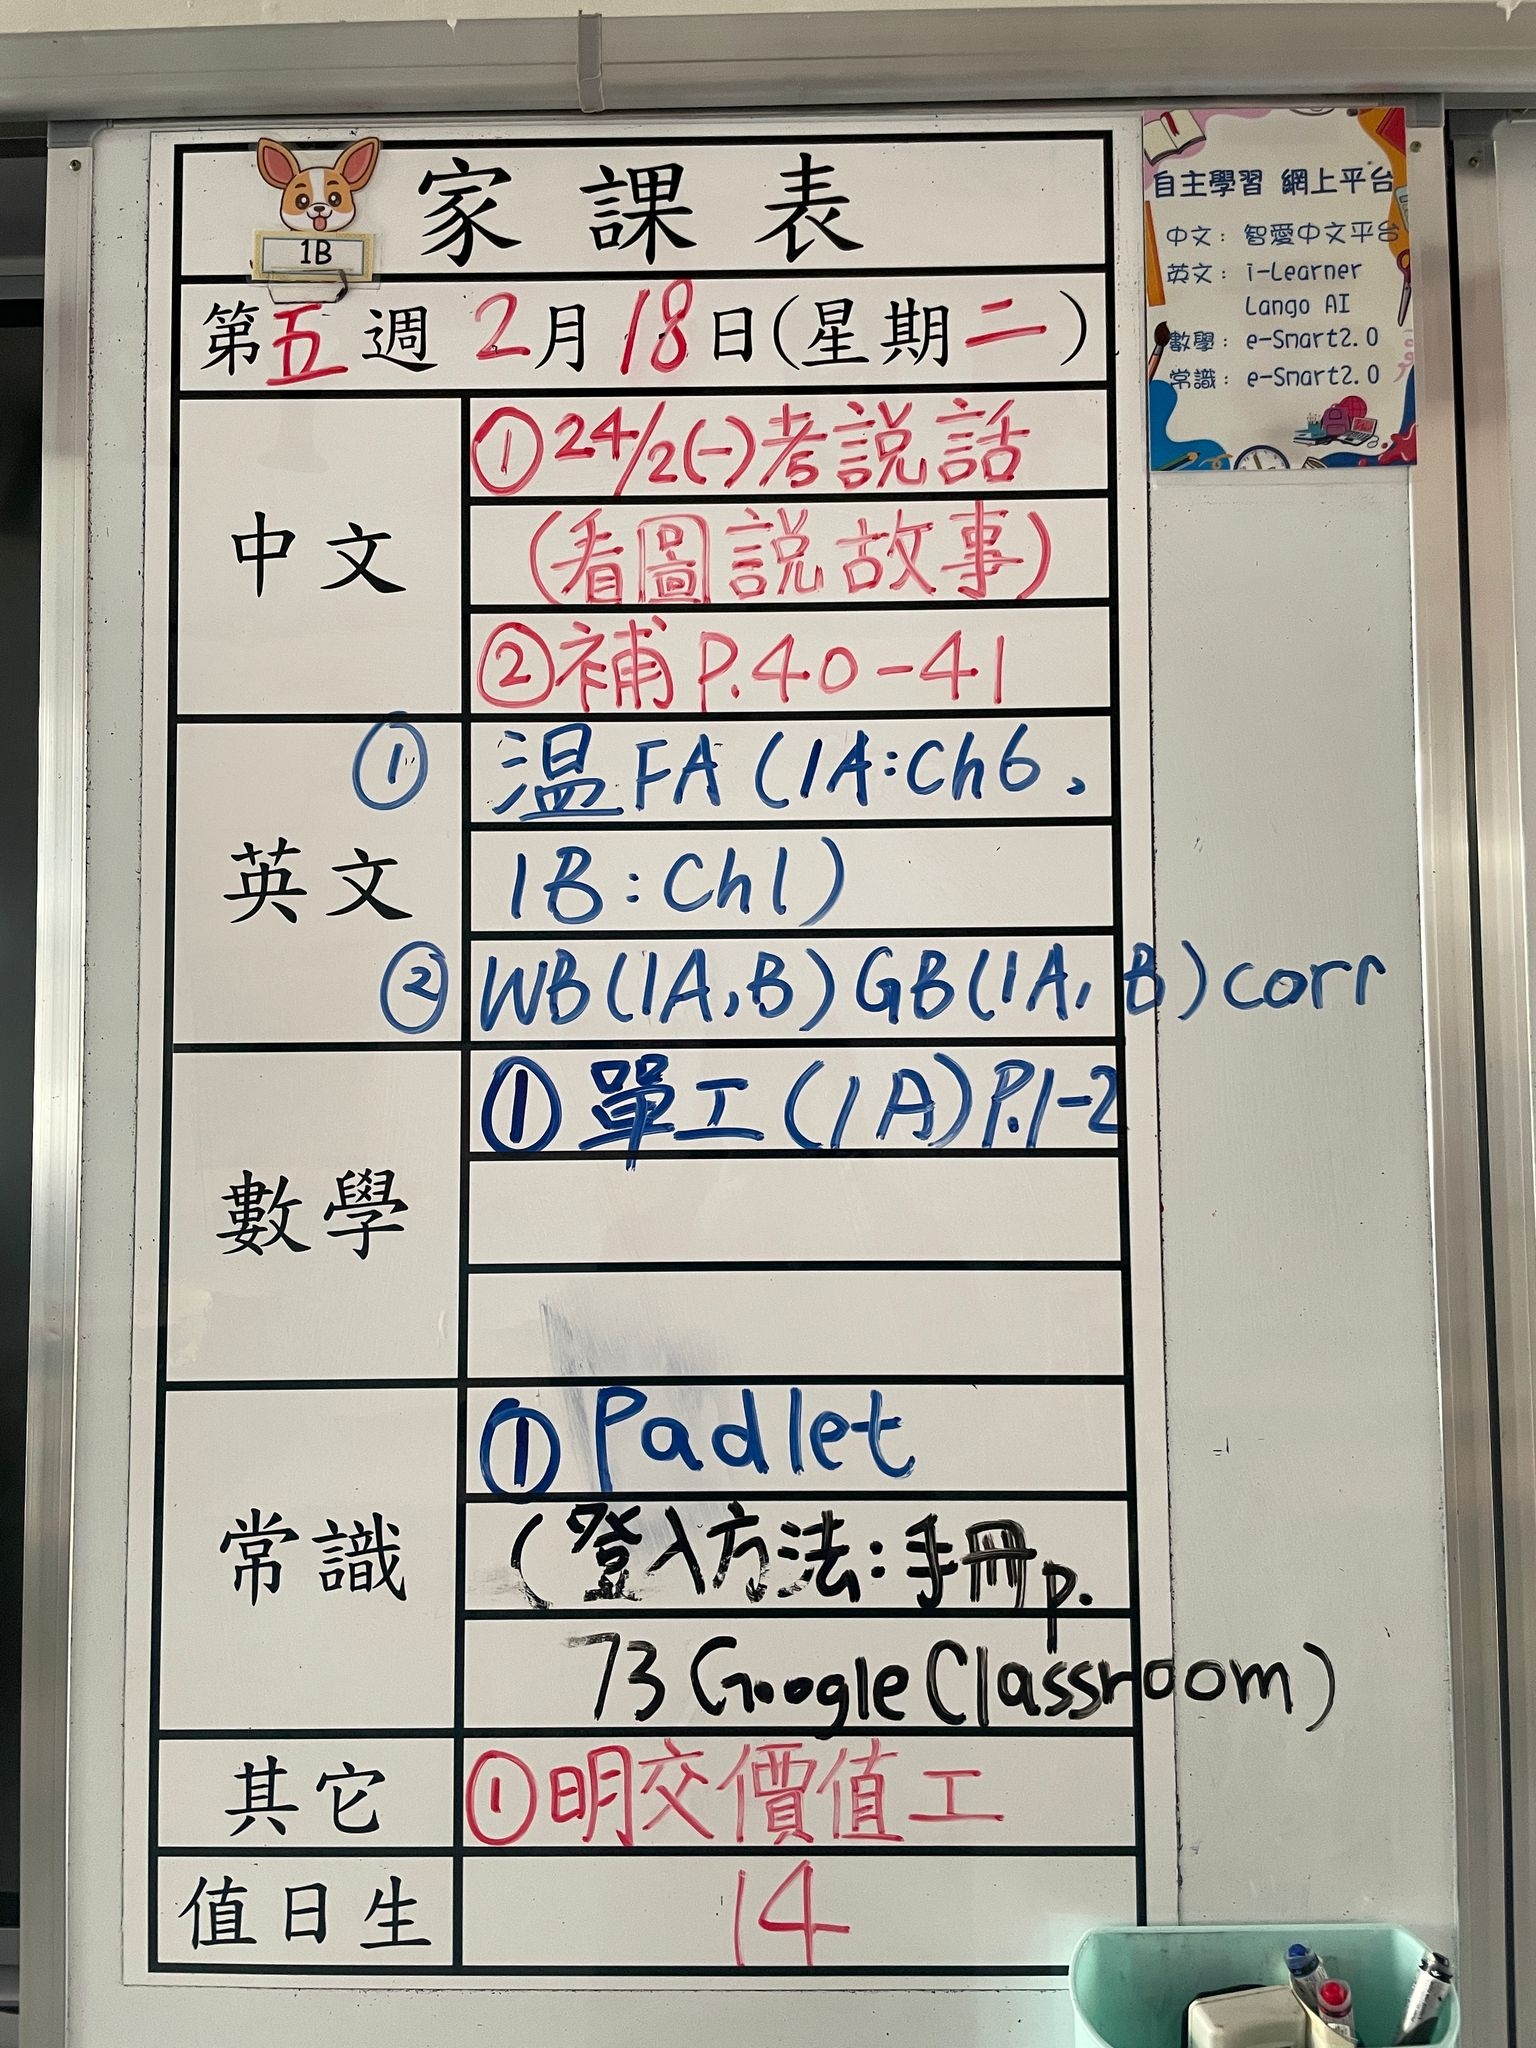 家課表
1B
第五週 2月18日(星期二)
中文
①24/2(一)考說話
(看圖說故事)
②補 P.40-41
英文
① 温 FA (1A:Ch6、
1B:Ch1)
② WB(1A,B) GB(1A,B) corr
數學
①單工(1A)P.1-2
常識
① Padlet
(登入方法:手冊p.
73 Google Classroom)
其它
①明交價值工
值日生
14
自主學習 網上平台
中文: 智愛中文平台
英文: i-Learner
Lango AI
數學: e-Smart2.0
常識: e-Smart2.0